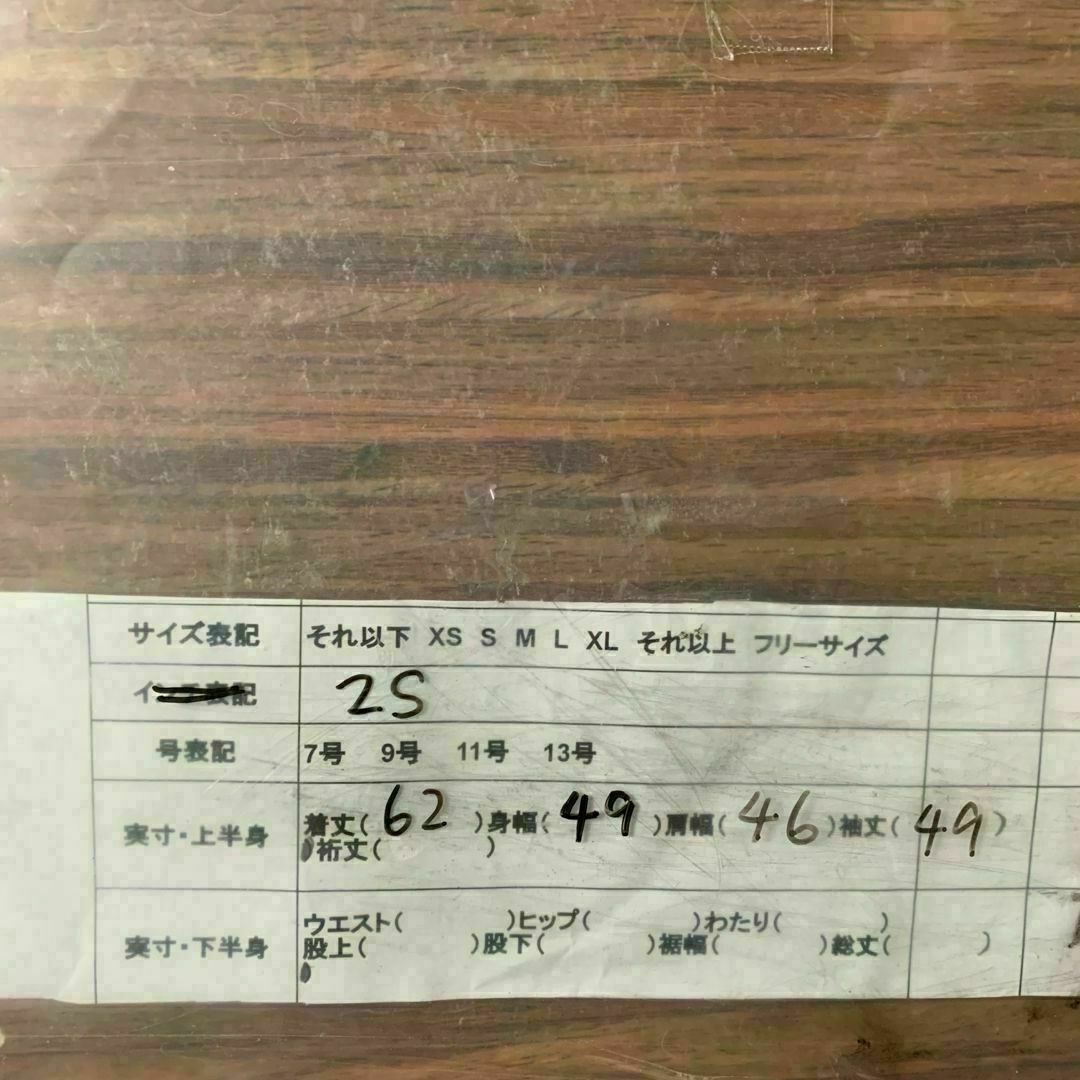 サイズ表記 それ以下 XS S M L XL それ以上 フリーサイズ
表記 2S
号表記 7号 9号 11号 13号
実寸・上半身 着丈( 62 )身幅( 49 )肩幅( 46 )袖丈( 49 )
裄丈( )
実寸・下半身 ウエスト( )ヒップ( )わたり( )
股上( )股下( )裾幅( )総丈( )